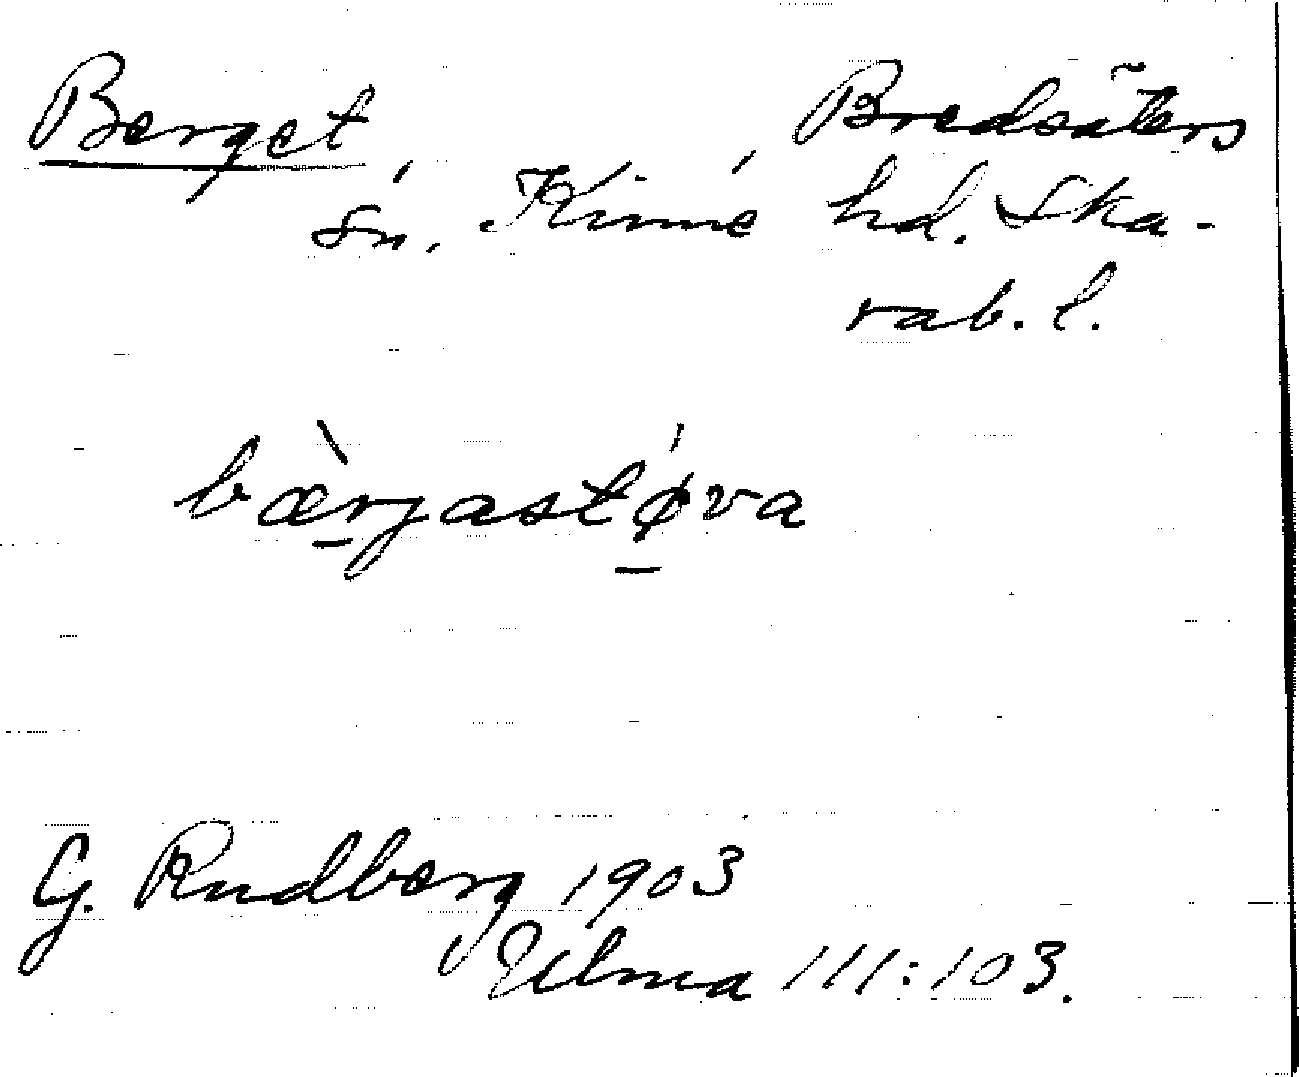 Berget Bredsäters
sn. Kinne hd. Ska-
rab. l.
bærjastøva
G. Rudberg 1903
Ulma 111:103.